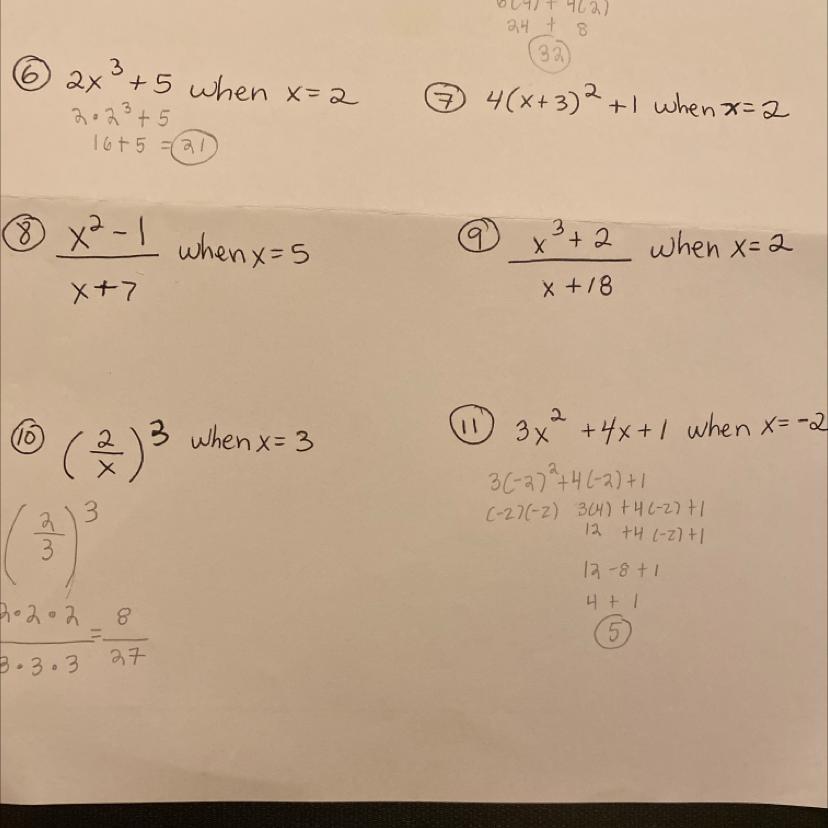 6(4) + 4(2)
24 + 8
32
⑥ 2x³ + 5 when x = 2
2 • 2³ + 5
16 + 5 = 21
⑦ 4(x+3)² + 1 when x = 2
⑧ x² - 1 when x = 5
x + 7
⑨ x³ + 2 when x = 2
x + 18
⑩ (2/x)³ when x = 3
(2/3)³
2 • 2 • 2 = 8
3 • 3 • 3 27
⑪ 3x² + 4x + 1 when x = -2
3(-2)² + 4(-2) + 1
(-2)(-2) 3(4) + 4(-2) + 1
12 + 4(-2) + 1
12 - 8 + 1
4 + 1
5